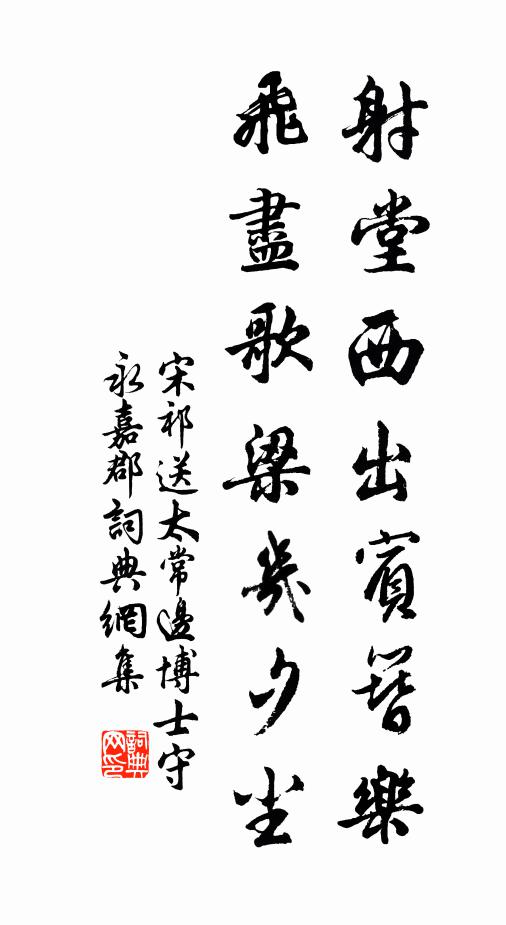 射堂西出賓簪樂
飛盡歌梁幾夕塵
宋祁送太常邊博士守
永嘉郡詞典網集
詞典网印